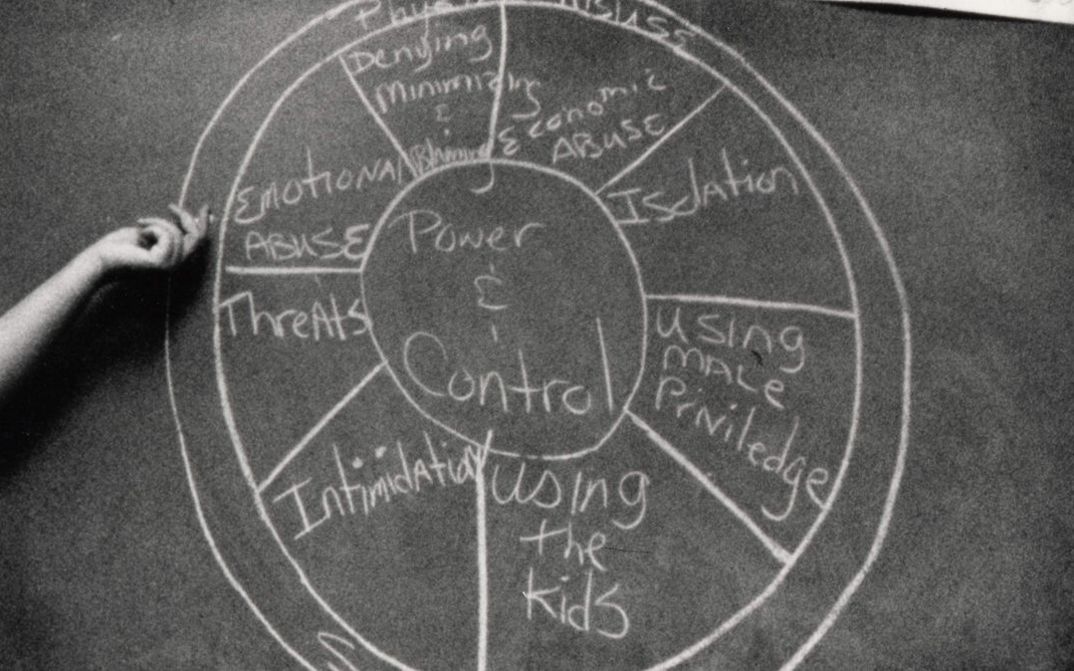 Physi ABUSE
Denying
Minimizing
&
Blaming
Economic
ABUSE
Isolation
Using
MALE
Priviledge
Using
the
Kids
Intimidation
Threats
Emotional
ABUSE
Power
&
Control